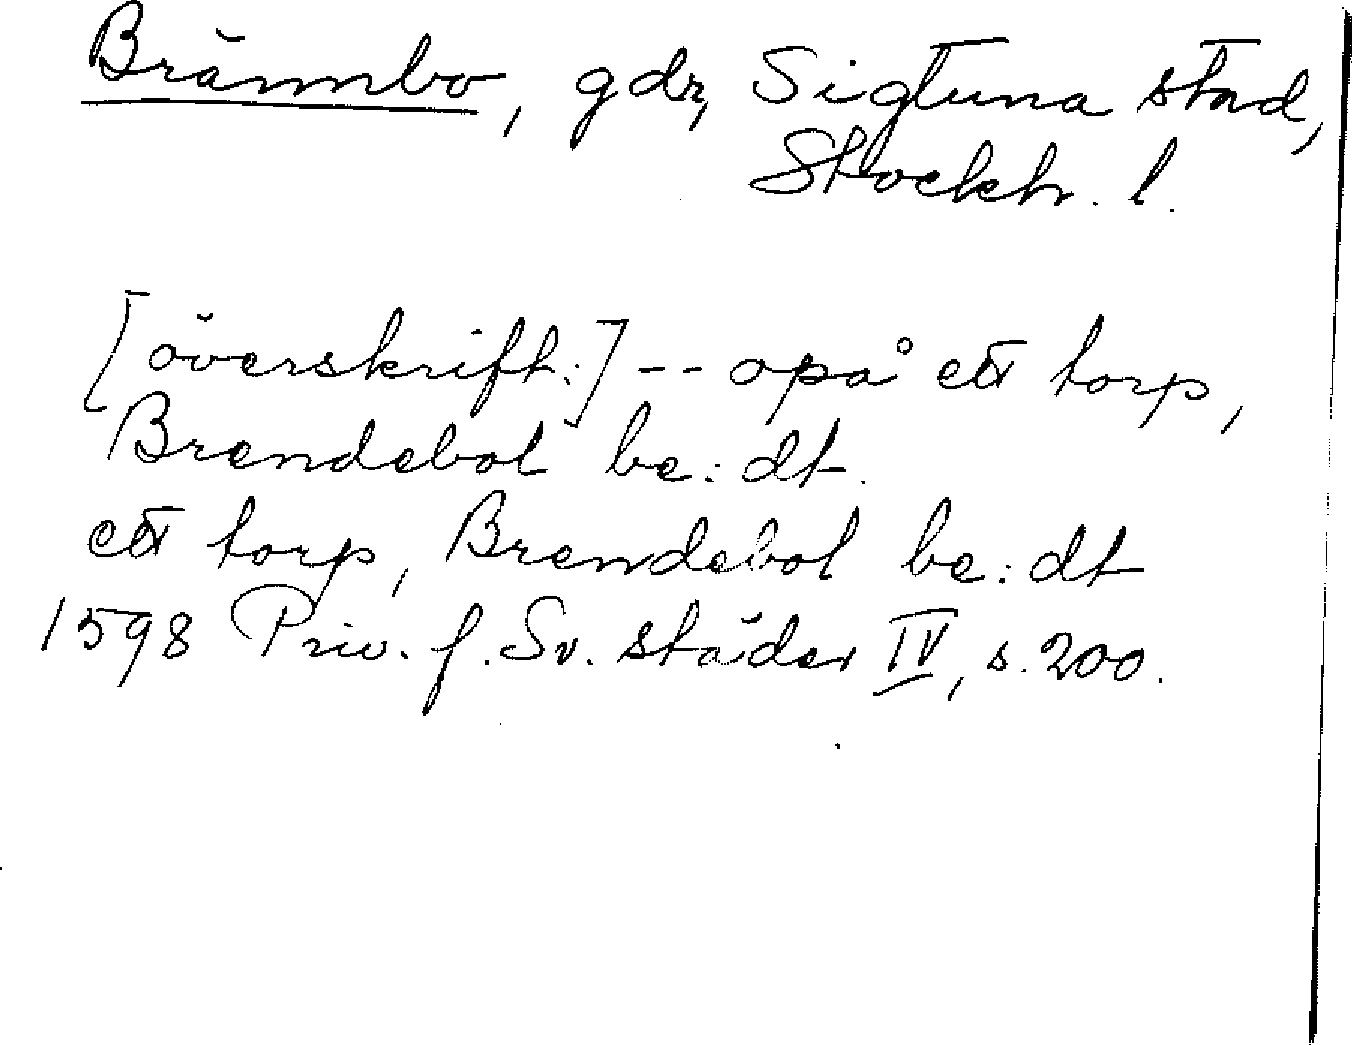 Brännbo, gdr, Sigtuna stad,
Stockh. l.
[överskrift:] -- opå ett torp,
Brendebol be:dt.
ett torp, Brendebol be:dt
1598 Priv. f. Sv. städer IV, s. 200.